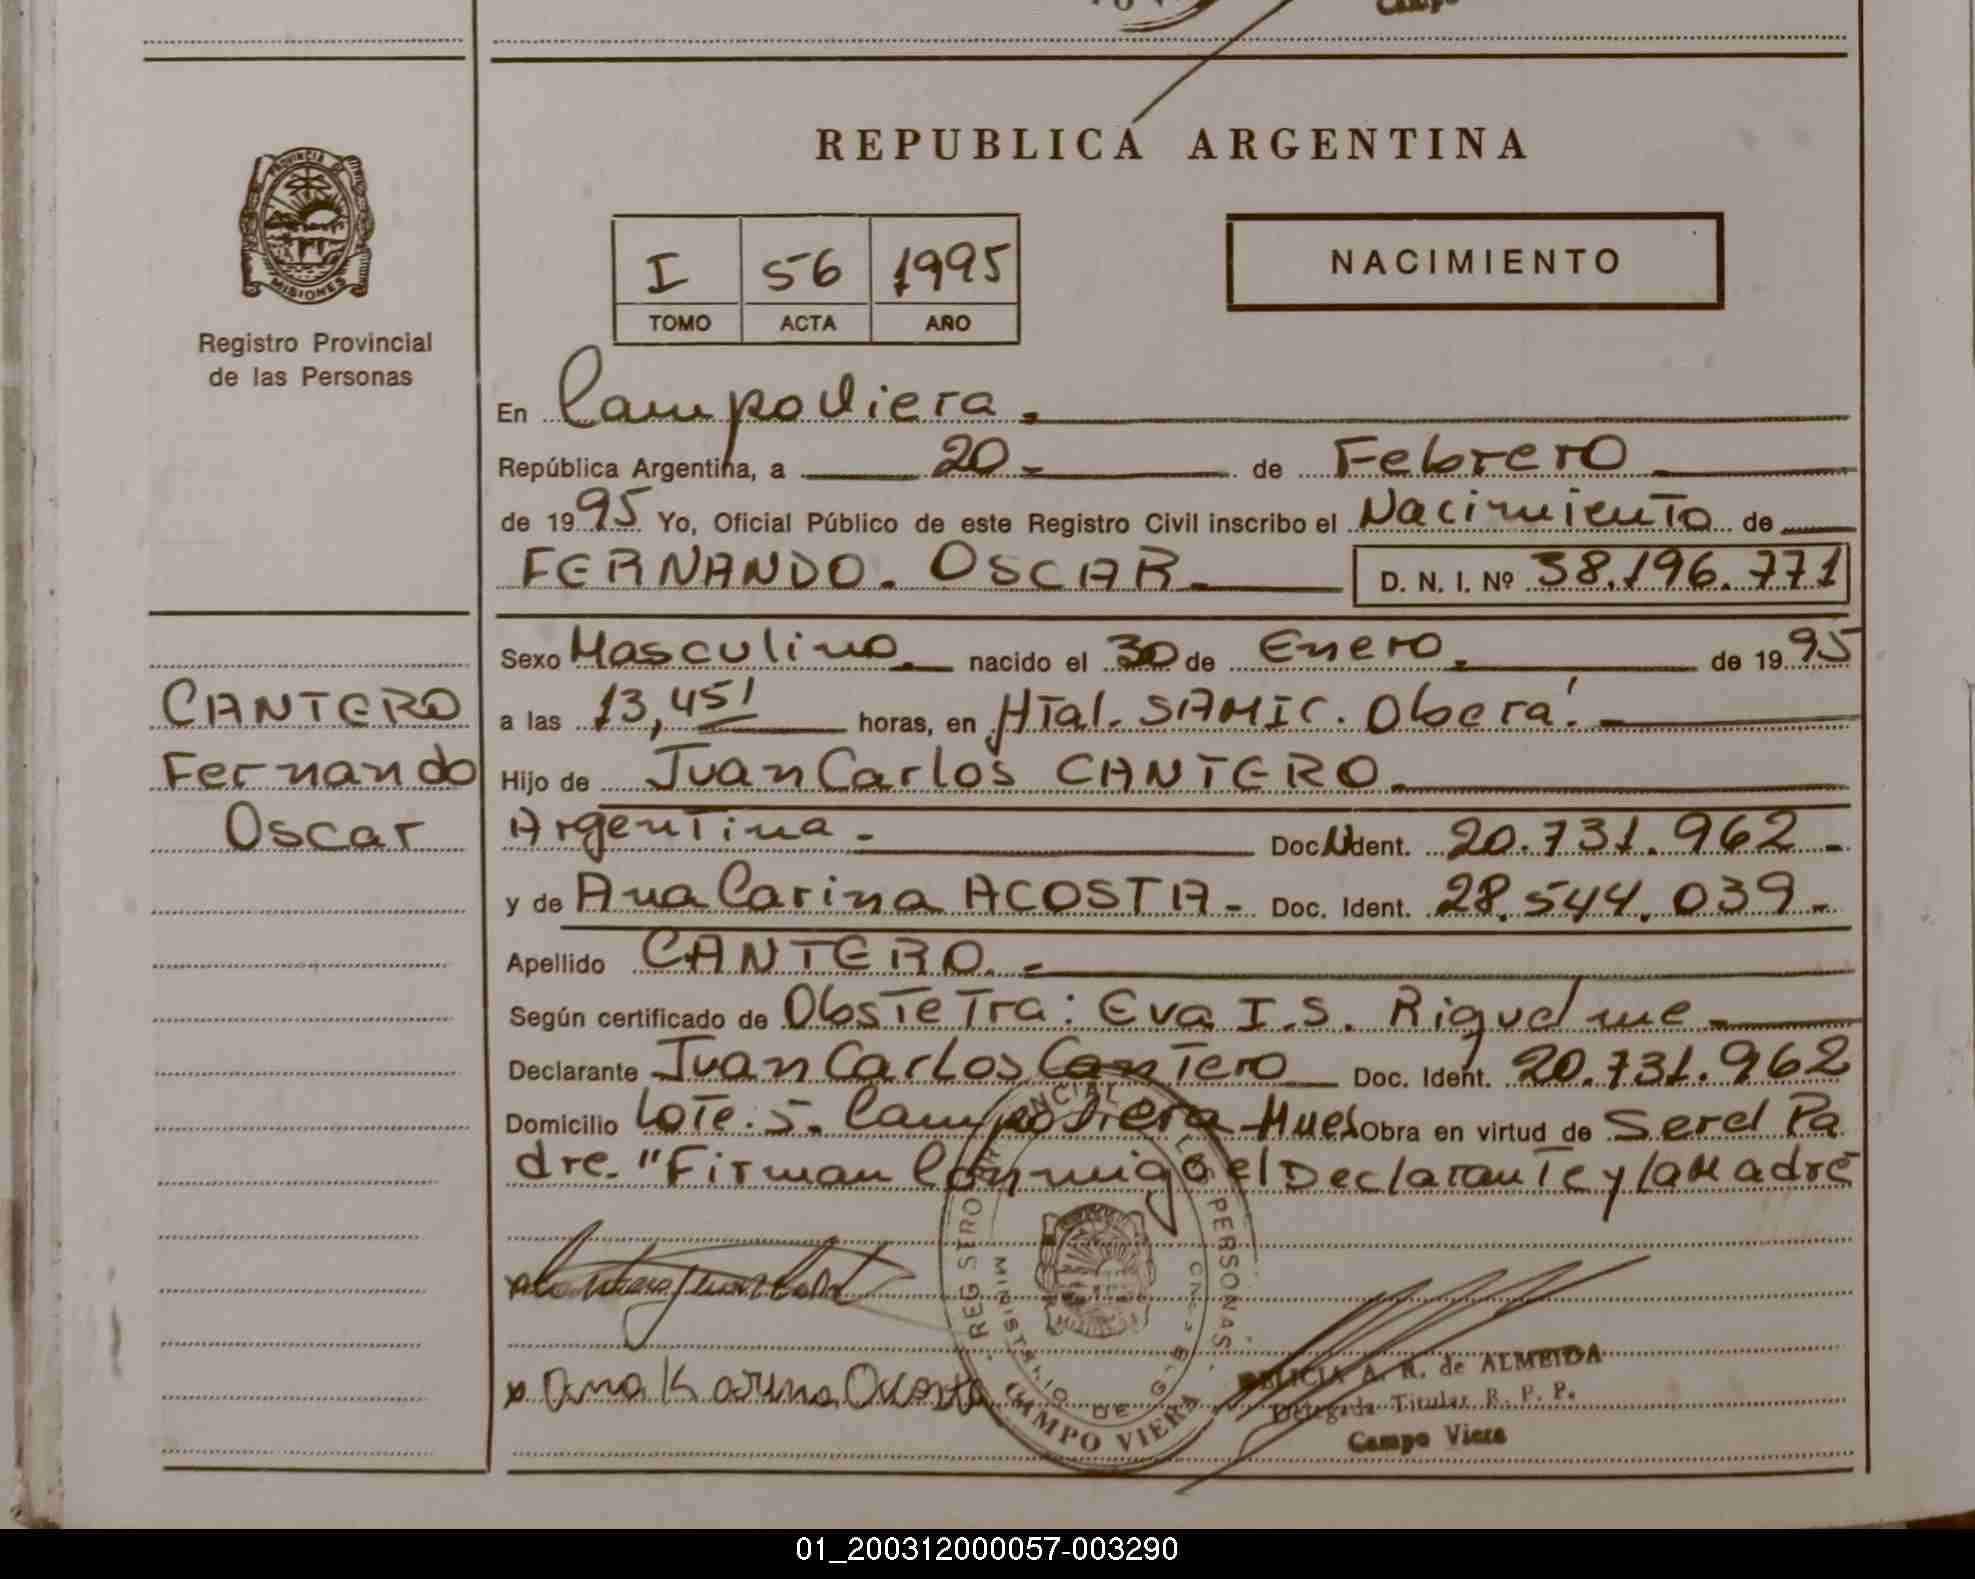 Campo
REPUBLICA ARGENTINA
PROVINCIA DE
MISIONES
Registro Provincial
de las Personas
I 56 1995
TOMO ACTA AÑO
NACIMIENTO
En Campo Viera.
República Argentina, a 20 - de Febrero
de 1995 Yo, Oficial Público de este Registro Civil inscribo el Nacimiento de
FERNANDO. OSCAR D. N. I. Nº 38.196.771
CANTERO
Fernando
Oscar
Sexo Masculino. nacido el 30 de Enero. de 1995
a las 13,45' horas, en HTal. SAMIC. Oberá.
Hijo de Juan Carlos CANTERO.
Argentina - Doc. N Ident. 20.731.962 -
y de Ana Carina ACOSTA - Doc. Ident. 28.544.039 -
Apellido CANTERO. -
Según certificado de ObsTeTra: Eva I.S. Riquelme
Declarante Juan Carlos Cantero Doc. Ident. 20.731.962
Domicilio LoTe. 5. Campo Viera - Mues Obra en virtud de Ser el Pa
dre. "Firman Conmigo el Declarante y la Madre
Ana Karina
REGISTRO PROVINCIAL PERSONAS
MINISTERIO DE
CAMPO VIERA
DELICIA A. R. de ALMEIDA
Delegada Titular R. P. P.
Campo Viera
01_200312000057-003290